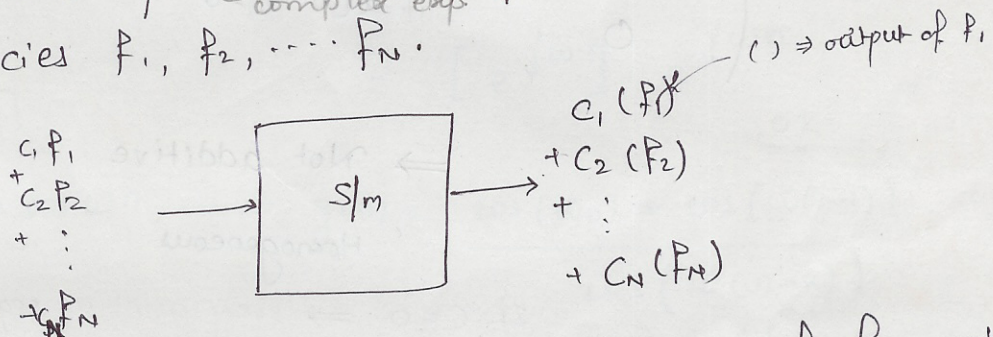 complex exp
cies f₁, f₂, ..... f_N.
( ) ⇒ output of f₁
c₁ f₁
+
c₂ f₂
+ ⋮
+c_N f_N
S/m
c₁ (f₁)
+ c₂ (f₂)
+ ⋮
+ c_N (f_N)